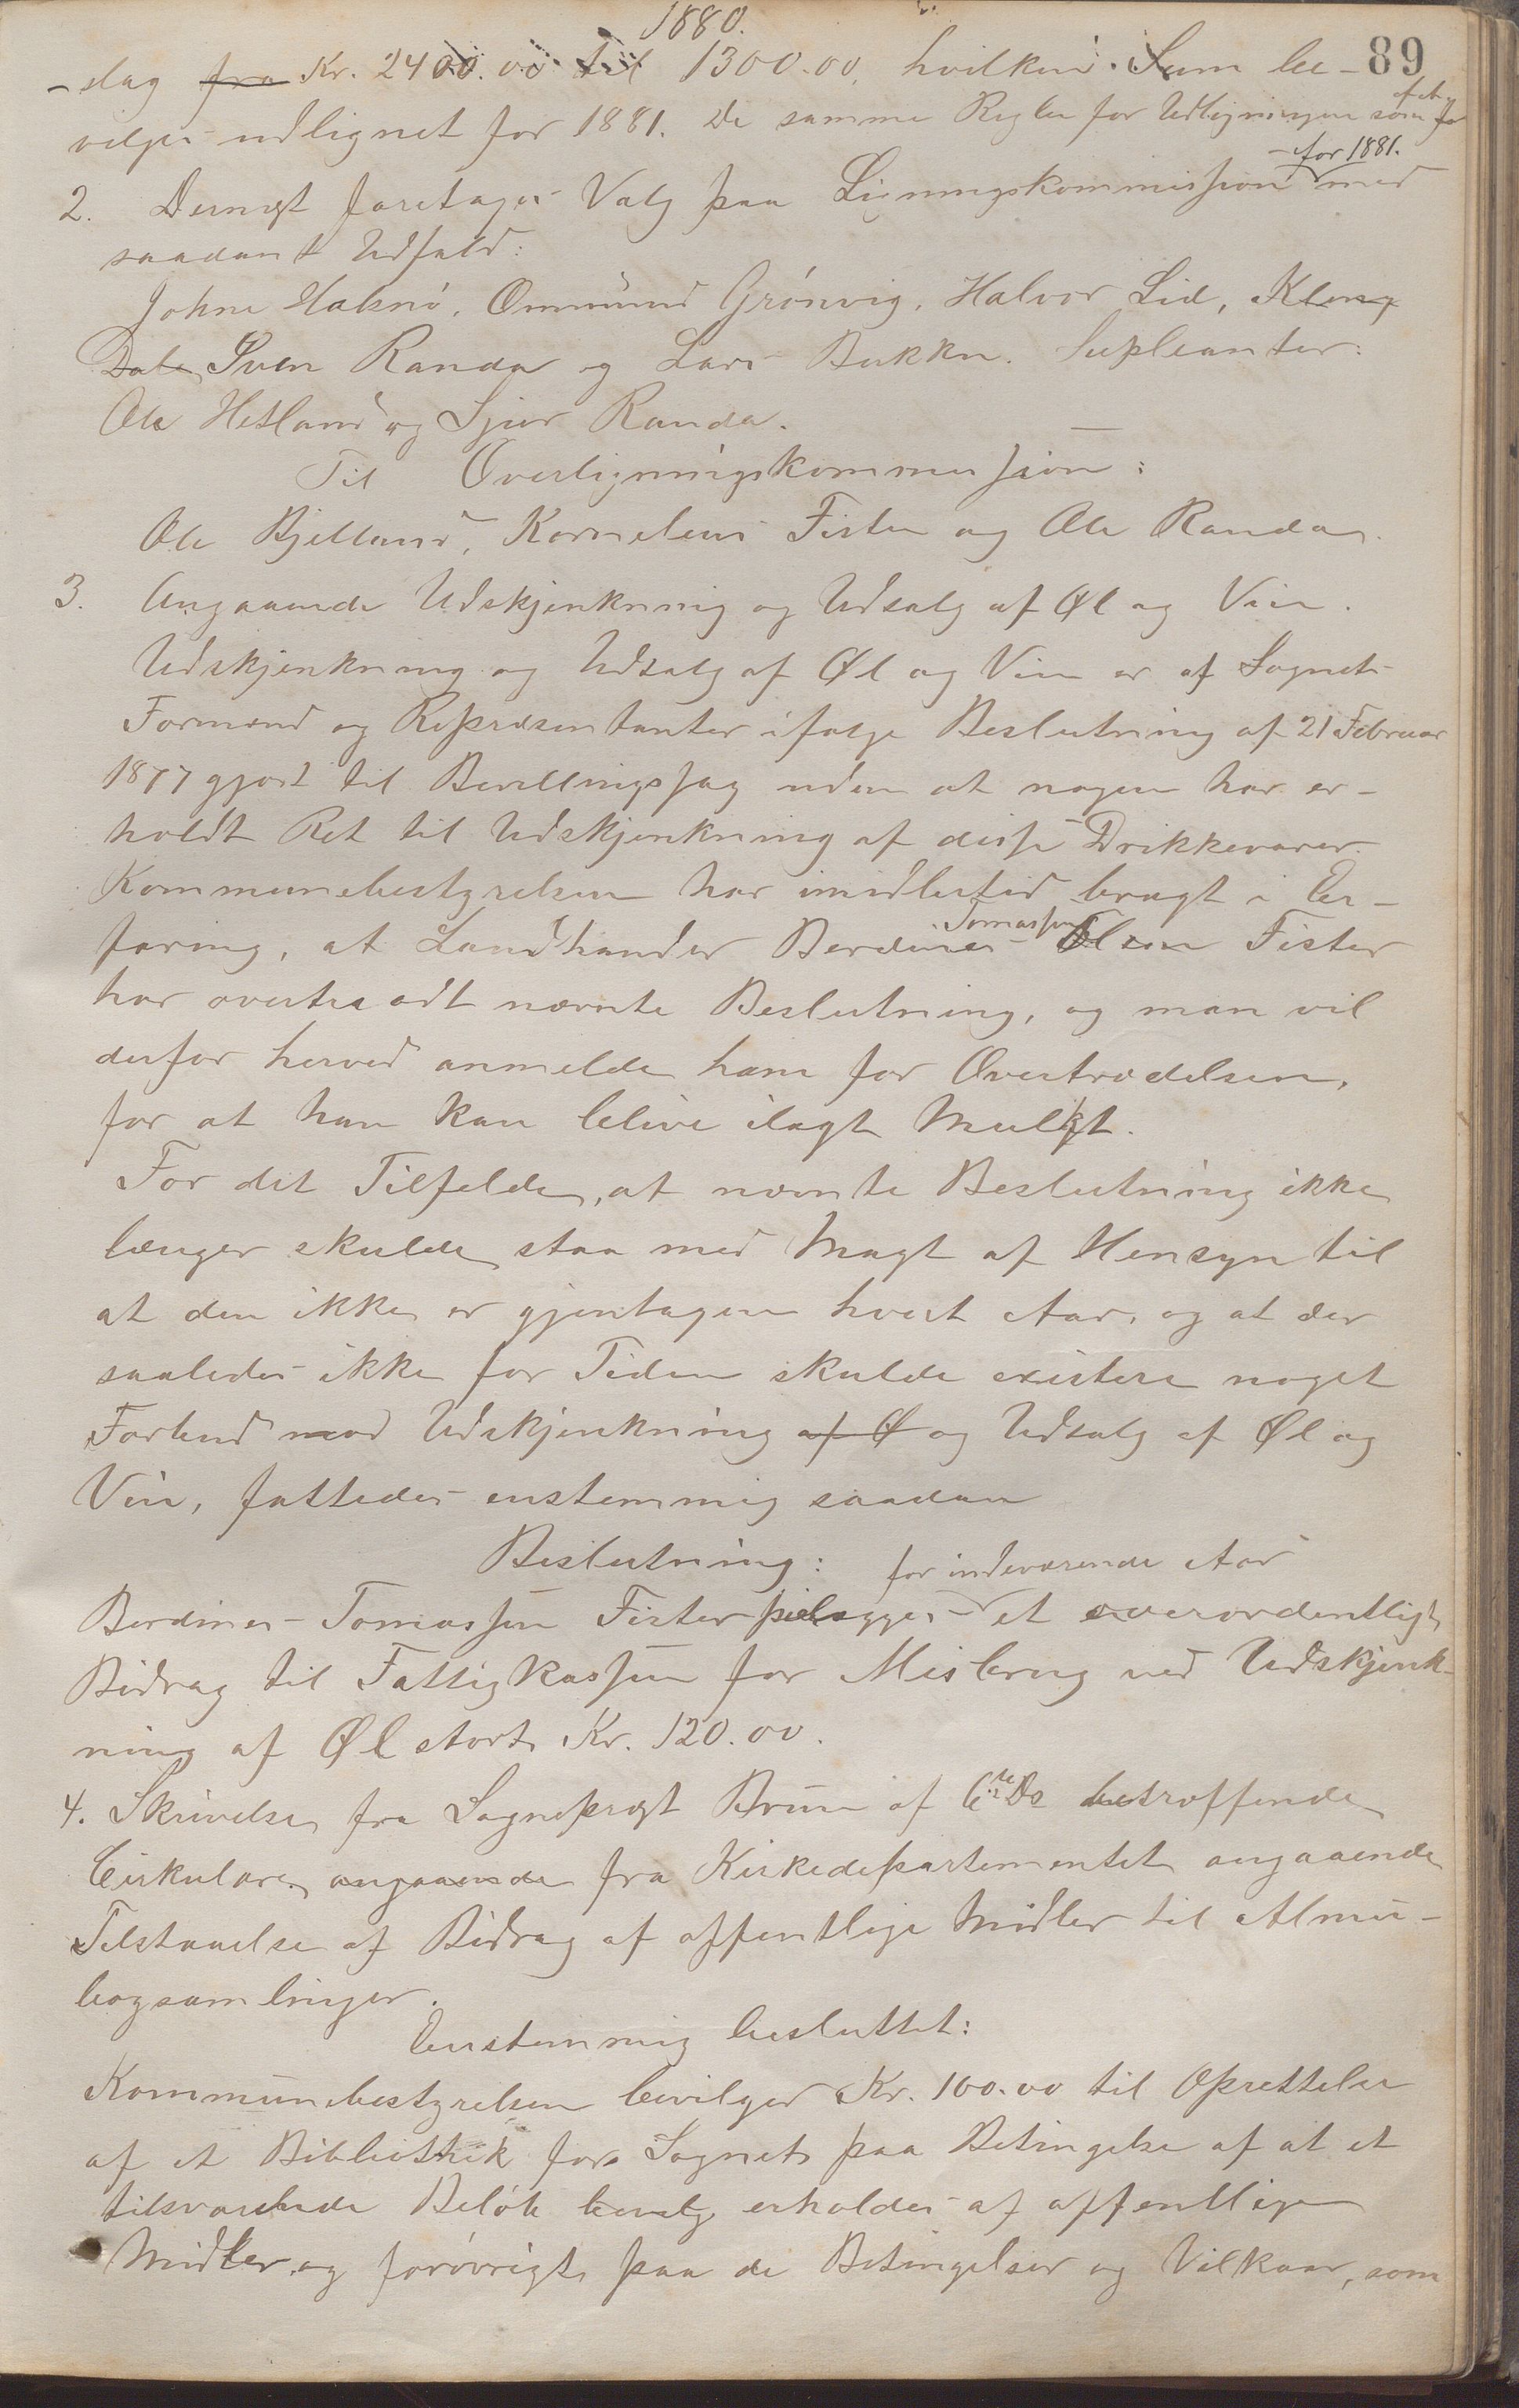 1880.
89
-slag fra Kr. 2400.00 til 1300.00, hvilken Sum be-
vilges udlignet for 1881. De samme Regler for Udligningen som for
for 1881.
2. Dernæst foretoges Valg paa Ligningskommission med
saadant Udfald:
Johne Halsnø, Ommund Grønvig, Halvor Lid, Kleng
Dale, Sven Randa og Lars Bukkn. Supleanter:
Ole Hetland og Sjur Randa.
Til Overligningskommission:
Ole Bjelland, Kornelius Fister og Ole Randa.
3. Angaaende Udskjenkning og Udsalg af Øl og Vin.
Udskjenkning og Udsalg af Øl og Vin er af Sognets
Formænd og Repræsentanter ifølge Beslutning af 21 Februar
1877 gjort til Bevillingssag uden at nogen har er-
holdt Ret til Udskjenkning af disse Drikkevarer.
Kommunebestyrelsen har imidlertid bragt i Er-
Tomassen
faring, at Landhandler Berdines Olsen Fister
har overtraadt nævnte Beslutning, og man vil
derfor herved anmelde ham for Overtrædelsen,
for at han kan blive ilagt Mulkt.
For det Tilfelde, at nævnte Beslutning ikke
længer skulde staa med Magt af Hensyn til
at den ikke er gjentagen hvert Aar, og at der
saaledes ikke for Tiden skulde existere noget
Forbud mod Udskjenkning af Ø og Udsalg af Øl og
Vin, fattedes enstemmig saadan
Beslutning: for indeværende Aar
Berdines Tomassen Fister pielægges et overordentligt
Bidrag til Fattigkassen for Misbrug ved Udskjenk-
ning af Øl stort Kr. 120.00.
4. Skrivelse fra Sogneprest Brun af 6te Ds betræffende
Cirkulære angaaende fra Kirkedepartementet angaaende
Tilstaaelse af Bidrag af offentlige Midler til Almue-
bogsamlinger.
Enstemmig besluttet:
Kommunebestyrelsen bevilger Kr. 100.00 til Oprettelse
af et Bibliothek for Sognet paa Betingelse af at et
tilsvarende Beløb bevilg erholdes af offentlige
Midler og forøvrigt paa de Betingelser og Vilkaar, som